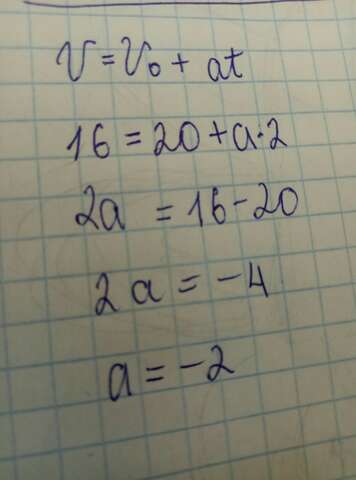 V = V₀ + at
16 = 20 + a·2
2a = 16 - 20
2a = -4
a = -2